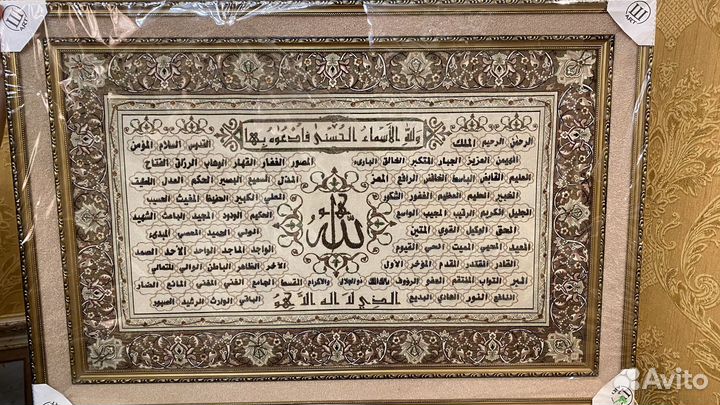 ولله الأسماء الحسنى فادعوه بها
الرحمن الرحيم الملك القدوس السلام المؤمن
المهيمن العزيز الجبار المتكبر الخالق البارىء المصور الغفار القهار الوهاب الرزاق الفتاح
العليم القابض الباسط الخافض الرافع المعز المذل السميع البصير الحكم العدل اللطيف
الخبير الحليم العظيم الغفور الشكور العلي الكبير الحفيظ المغيث الحسيب
الجليل الكريم الرقيب المجيب الواسع الحكيم الودود المجيد الباعث الشهيد
الحق الوكيل القوي المتين الولي الحميد المحصي المبدىء
الله
المعيد المحيي المميت الحي القيوم الواجد الماجد الواحد الأحد الصمد
القادر المقتدر المقدم المؤخر الأول الآخر الظاهر الباطن الوالي المتعالي
البر التواب المنتقم العفو الرؤوف مالك الملك ذو الجلال والاكرام المقسط الجامع الغني المغني المانع الضار
النافع النور الهادي البديع الباقي الوارث الرشيد الصبور
الذي لا اله الا هو
Avito